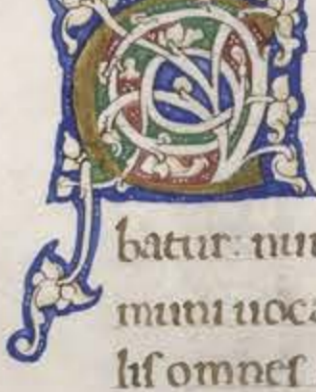 batur: nun
muni uoca
lis omnes